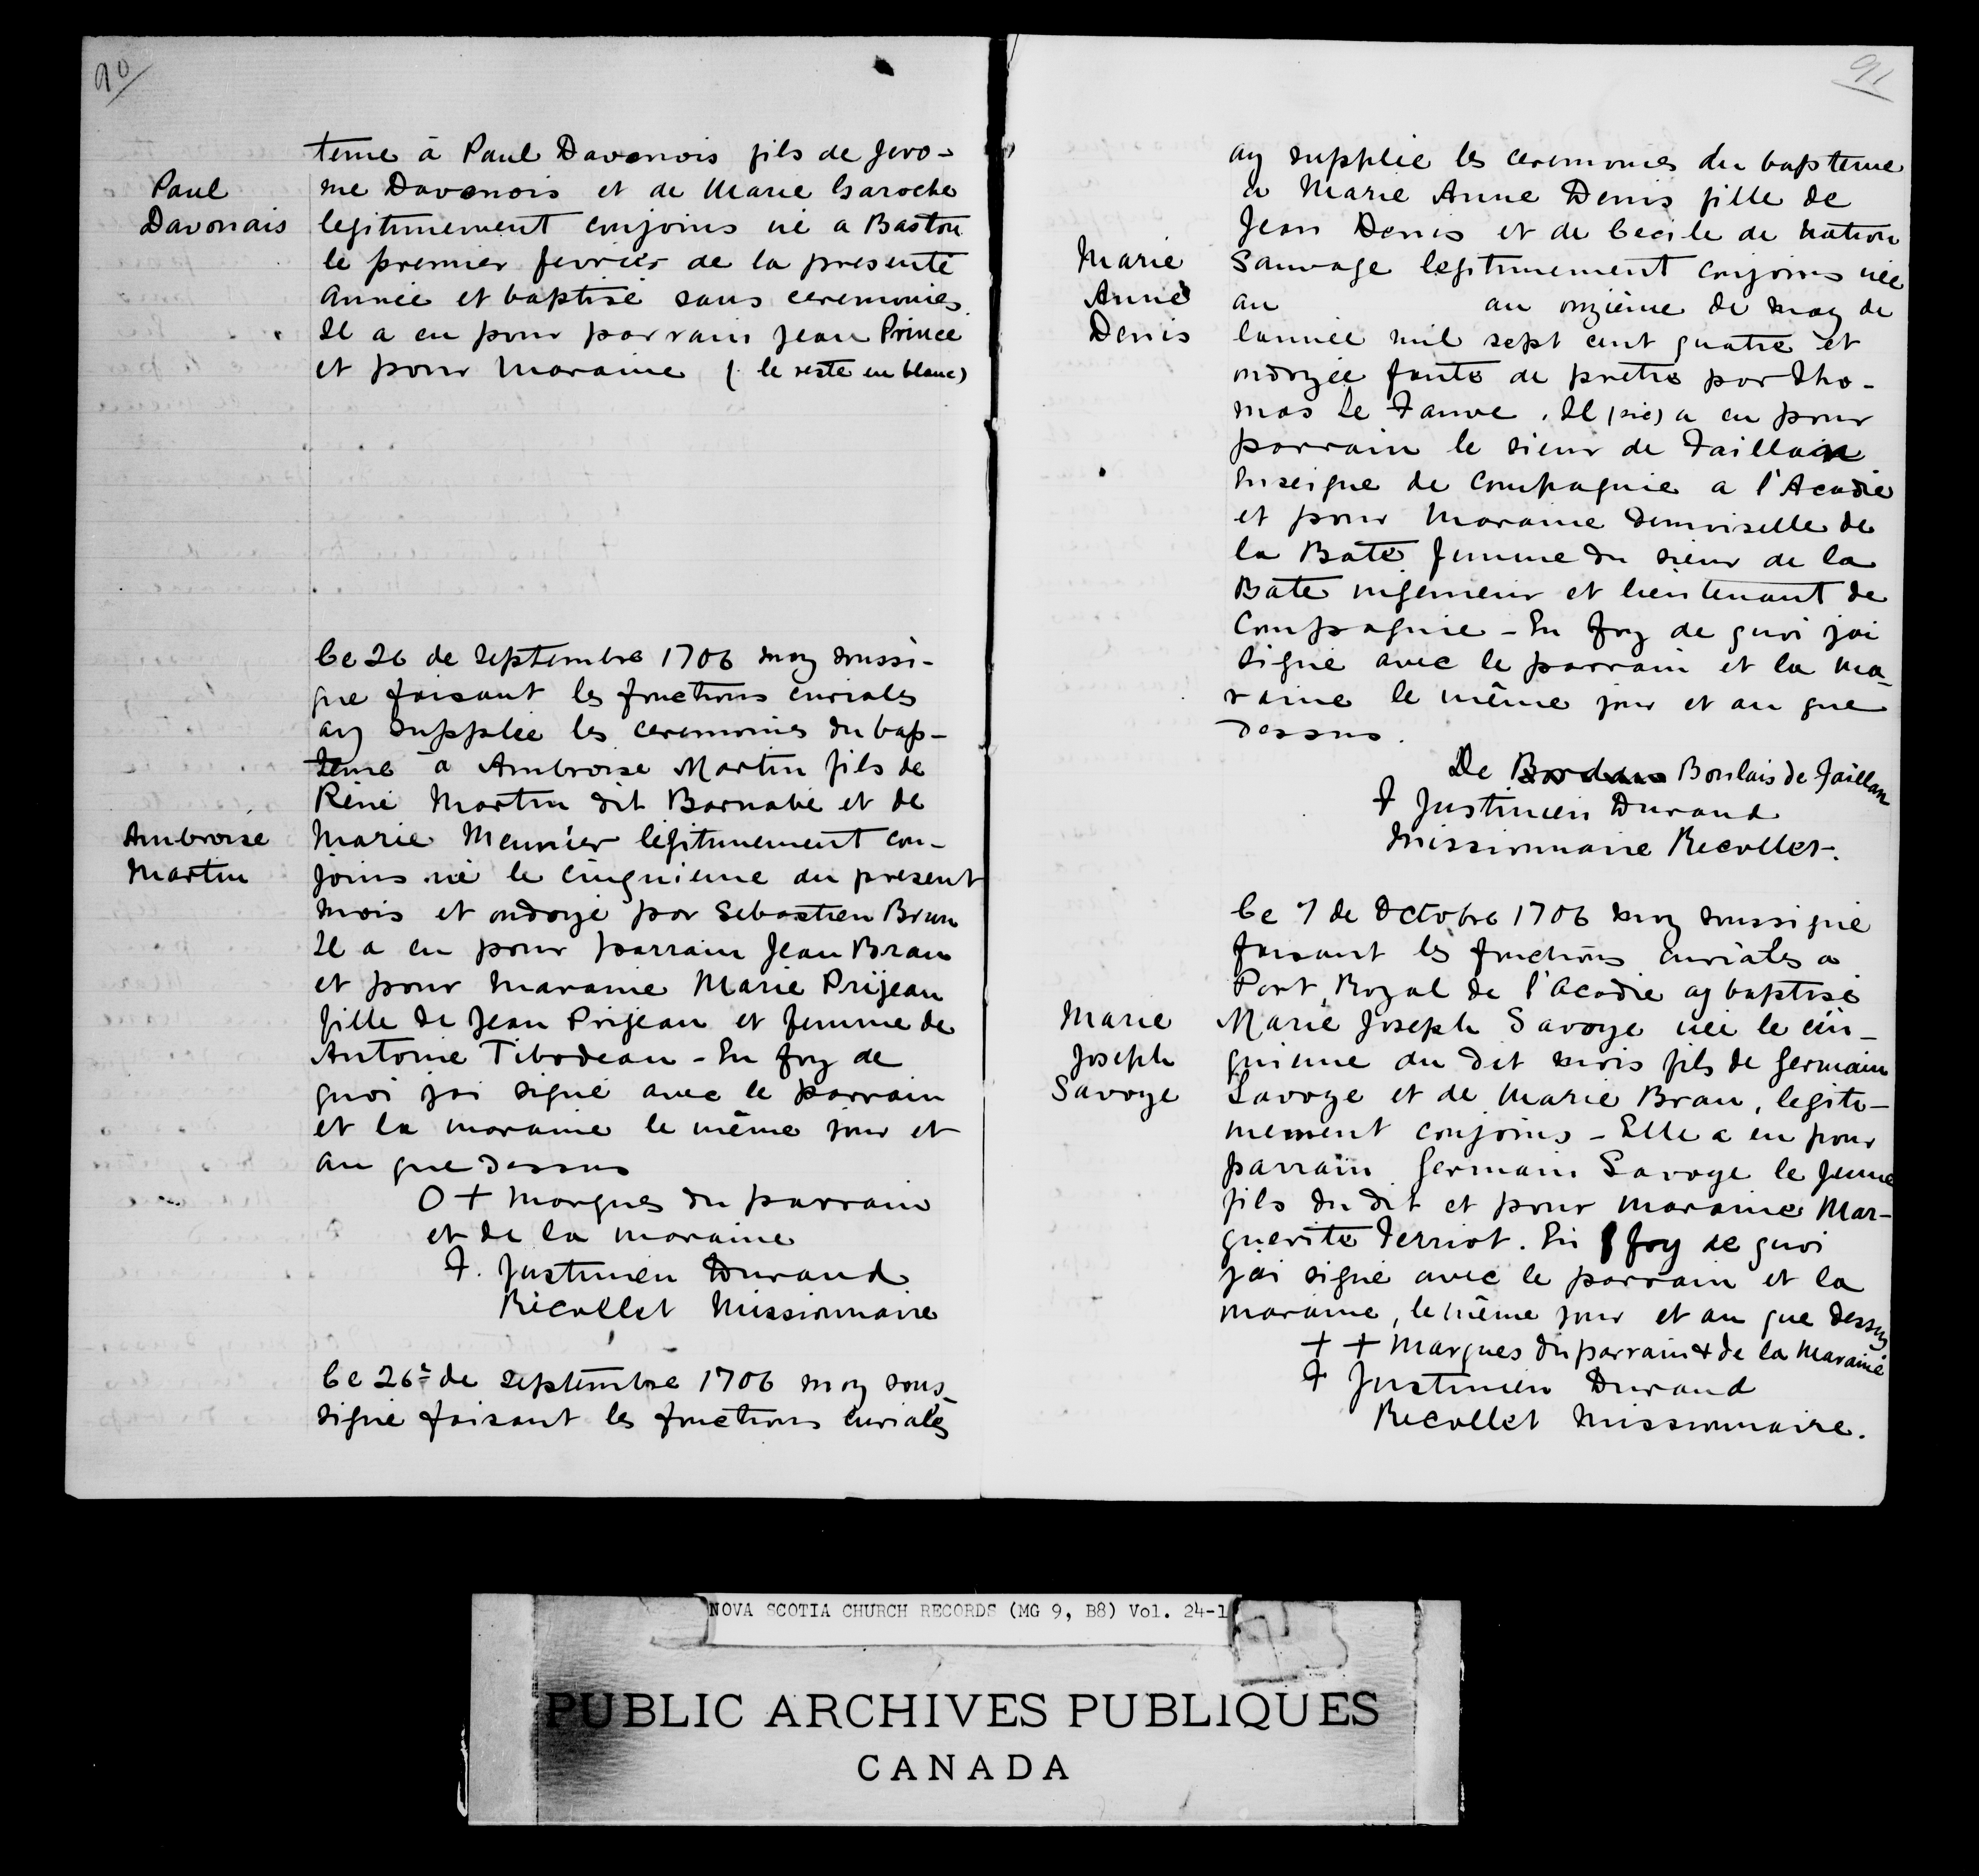 90
teme à Paul Davonois fils de Jero-
Paul
Davonais
me Davonois et de Marie Garoche
legitimement conjoins né a Baston
le premier fevrier de la presente
année et baptisé sans ceremonies.
Il a eu pour parrain Jean Prince
et pour Maraine ( le reste en blanc)
Ce 26 de Septembre 1706 moy soussi-
gne faisant les fonctions curiales
ay supplée les ceremonies du bap-
teme à Ambroise Martin fils de
Réné Martin dit Barnabé et de
Ambroise
Martin
Marie Meunier légitimement con-
joins né le cinquieme du present
mois et ondoyé par Sebastien Brun
Il a eu pour parrain Jean Braun
et pour maraine Marie Prijean
fille de Jean Prijean et femme de
Antoine Tibodeau - En foy de
quoi jai signé avec le parrain
et la maraine le même jour et
an que dessus
O + Marques du parrain
et de la maraine
F. Justinien Durand
Récollet Missionnaire
Ce 26e de Septembre 1706 moy sous-
signé faisant les fonctions curiales
91
ay supplée les ceremonies du bapteme
a Marie Anne Denis fille de
Jean Denis et de Cecile de nation
Marie
Anne
Denis
Sauvage legitimement conjoins née
au au onzième de may de
lannée mil sept cent quatre et
ondoyée faute de pretre par Tho-
mas Le Fauve. Il (sic) a eu pour
parrain le sieur de Faillan
Enseigne de Compagnie a l'Acadie
et pour Maraine Demoiselle de
la Bate femme du sieur de la
Bate ingenieur et lieutenant de
Compagnie - En foy de quoi jai
signé avec le parrain et la ma-
raine le même jour et an que
dessus.
De Boulais de Faillan
F Justinien Durand
Missionnaire Recollet.
Ce 7 de Octobre 1706 moy soussigné
faisant les fonctions curiales a
Port Royal de l'Acadie ay baptisé
Marie
Joseph
Savoye
Marie Joseph Savoye née le cin-
quieme du dit mois fils de Germain
Savoye et de Marie Brau, legiti-
mement conjoins - Elle a eu pour
parrain Germain Savoye le jeune
fils du dit et pour maraine Mar-
guerite Terriot. En foy de quoi
j'ai signé avec le parrain et la
maraine, le même jour et an que dessus
+ + Marques du parrain & de la Maraine
F Justinien Durand
Recollet Missionnaire.
NOVA SCOTIA CHURCH RECORDS (MG 9, B8) Vol. 24-1
PUBLIC ARCHIVES PUBLIQUES
CANADA